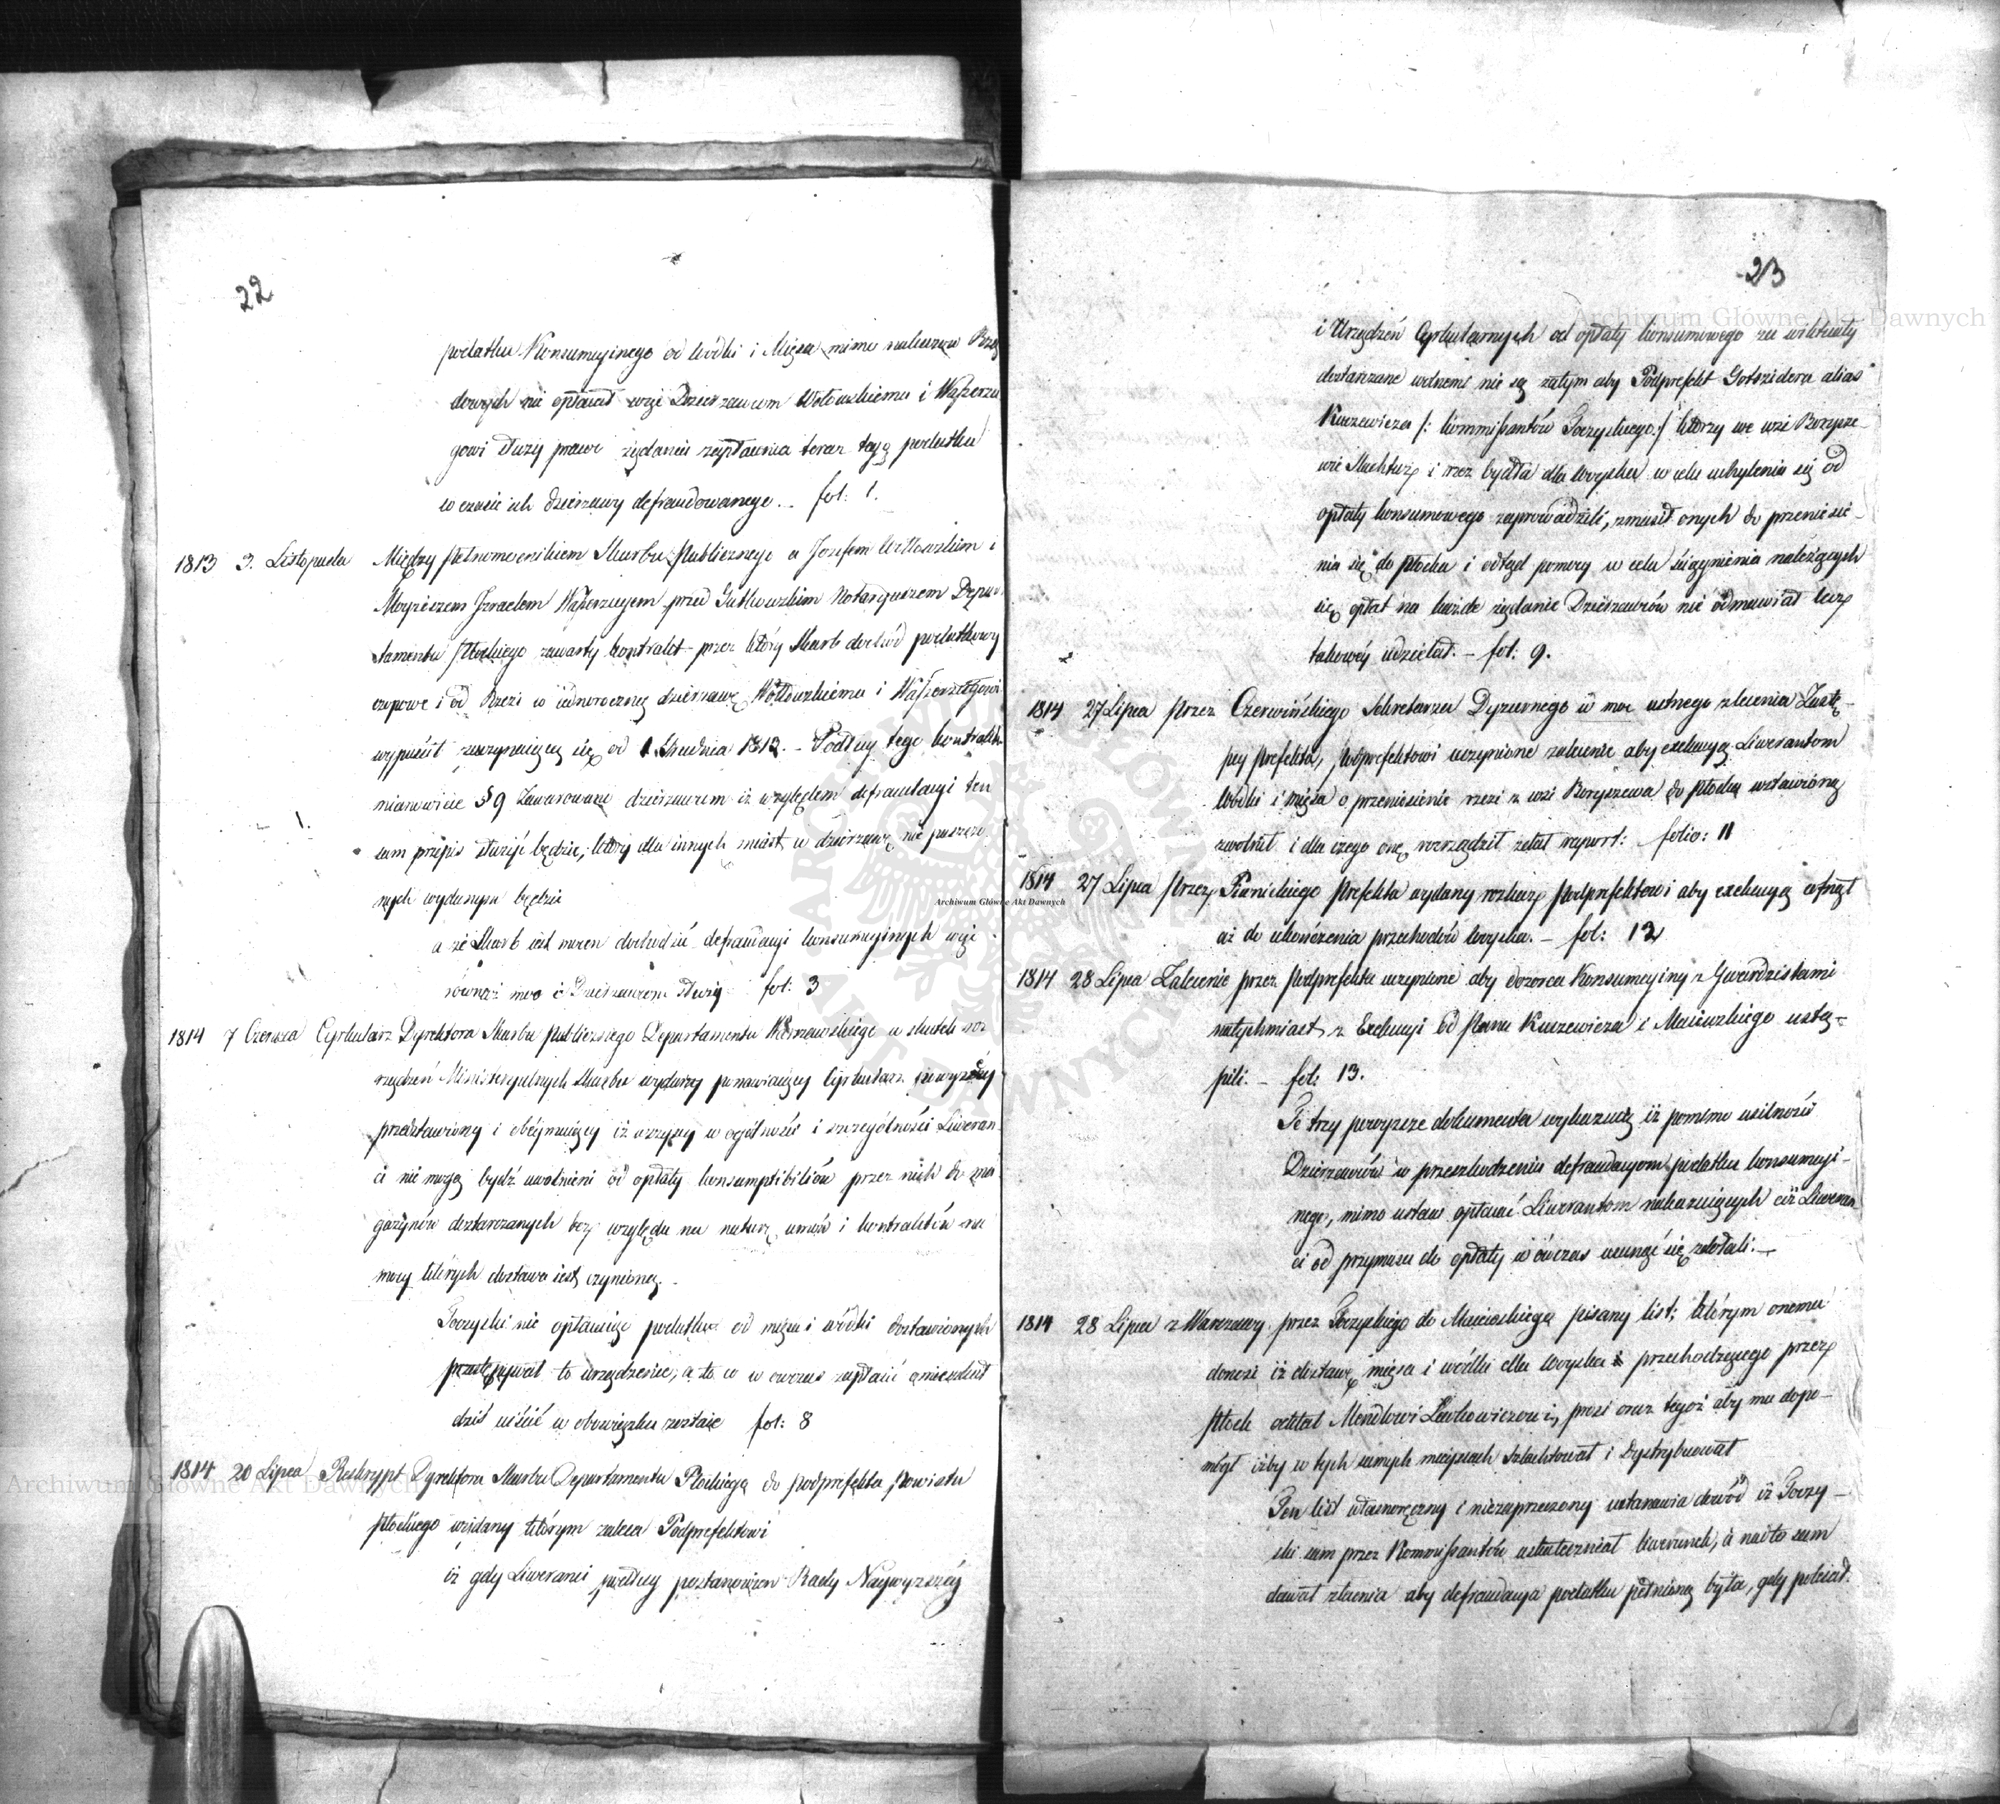 22
podatku Konsumcyinego od Wódki i Mięsa mimo nakazów Rzą
dowych nie opłacał więc Dzierzawcom Wołowskiemu i
gowi służy prawo żądania zapłacenia teraz tego podatku
w czasie ich dzierzawy defraudowanego. fol: 1.
1813 3. Listopada Między Pełnomocnikiem Skarbu Publicznego a Jozefem Wołowskim i
Moyzeszem Izraelem przed Gutkowskim Notaryuszem Depar
tamentu Płockiego zawarty kontrakt przez który Skarb dochód podatkowy
czopowe i od Rzezi w iednoroczną dzierzawę Wołowskiemu i
wypuścił zaczynaiącą się od 1 Grudnia 1813. – Podług tego kontraktu
mianowicie § 9 Zawarowano dzierzawcom iż względem defraudacyi ten
1.
sam przepis służyć będzie, który dla innych miast w dzierzawę nie puszczo
nych wydanym będzie
a że Skarb iest mocen dochodzić defraudacyi konsumcyinych więc
równaż moc i Dzierzawcom służy fol: 3
1814 7 Czerwca Cyrkularz Dyrektora Skarbu Publicznego Departamentu Warszawskiego w skutek roz
rządzeń Ministeryalnych Skarbu wydany ponawiaiący Cyrkularz powyżéy
przedstawiony i obéymuiący iż wszyscy w ogólności i szczególności Liweran
ci nie mogą bydź uwolnieni od opłaty konsumptibiliów przez nich do ma
gazynów dostarczanych bez względu na naturę umów i kontraktów na
mocy których dostawa iest czynioną.
Goczyski nie opłacaiąc podatku od mięsa i wódki dostawionych
przestępywał to urządzenie, a to co w owczas zapłacić omieszkał
dziś uiścić w obowiązku zostaie fol: 8
1814 20 Lipca Reskrypt Dyrektora Skarbu Departamentu Płockiego do Podprefekta Powiatu
Płockiego wydany którym zaleca Podprefektowi
iż gdy Liweranci podług postanowień Rady Naywyższéy
23
i Urządzeń Cyrkularnych od opłaty konsumowego za wiktuały
dostarczane wolnemi nie są zatym aby Podprefekt Gotszidera alias
Kuczewicza /: kommissantów Goczyskiego :/ którzy we wsi Borysze
wie Szlachtuz i rzez bydła dla woyska w celu uchylenia się od
opłaty konsumowego zaprowadzili, zmusił onych do przeniesie-
nia się do Płocka i odtąd pomocy w celu ściągnienia należących
się opłat na każde żądanie Dzierzawców nie odmawiał lecz
takowéy udzielał. – fol: 9.
1814 27 Lipca przez Czerwińskiego Sekretarza Dyzurnego w moc ustnego zlecenia Zastę-
pcy Prefekta, Podprefektowi uczynione zalecenie aby exekucyą Liwerantom
wódki i mięsa o przeniesienie rzezi z wsi Boryszewa do Płocka wstawioną
zwolnił i dla czego onę rozrządził zdał raport: folio: 11
1814 27 Lipca Przez Prefekta wydany rozkaz Podprefektowi aby exekucyą cofnął
aż do ukończenia przechodów woyska. – fol: 12
1814 28 Lipca Zalecenie przez Podprefekta uczynione aby dozorca Konsumcyiny z Gwardzistami
natychmiast z Exekucyi od Pana Kuczewicza i ustą-
pili. – fol: 13.
Te trzy powyższe dokumenta wykazuią iż pomimo usilność
Dzierzawców w przeszkodzeniu defraudacyom podatku konsumcyi-
nego, mimo ustaw opłacać Liwerantom nakazuiących ciż Liweran
ci od przymusu do opłaty w ówczas usunąć się zdołali. –
1814 28 Lipca z Warszawy przez Goczyskiego do pisany list, którym onemu
donosi iż dostawę mięsa i wódki dla woyska przechodzącego przez
Płock oddał Mendlowi Lewkowiczowi, prosi oraz tegoż aby mu dopo-
mógł iżby w tych samych mieyscach szlachtował i dystrybuował
Ten list własnoręczny i niezaprzeczony ustanawia dowód iż Goczy-
ski sam przez Kommissantów uskuteczniał liwerunek, a nadto sam
dawał zlecenia aby defraudacya podatku pełnioną była, gdy polecał
Archiwum Główne Akt Dawnych
Archiwum Główne Akt Dawnych
Archiwum Główne Akt Dawnych